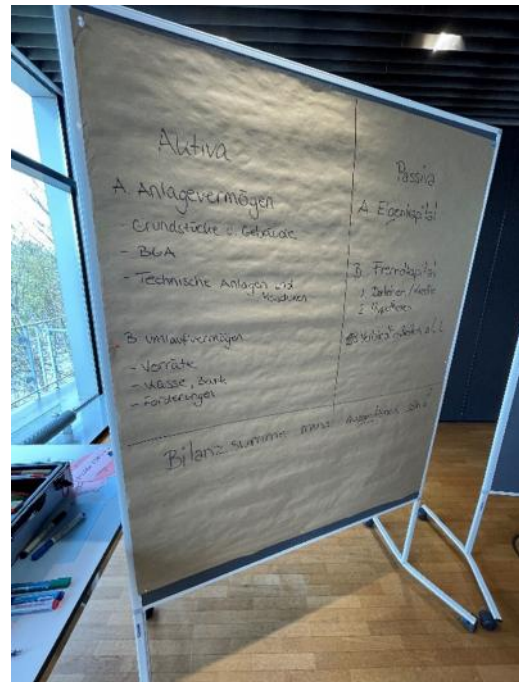 Aktiva
A. Anlagevermögen
- Grundstücke u. Gebäude
- BGA
- Technische Anlagen und
Maschinen
B. Umlaufvermögen
- Vorräte
- Kasse, Bank
- Forderungen
Passiva
A. Eigenkapital
B. Fremdkapital
1. Darlehen / Kredite
2. Hypotheken
3. Verbindlichkeiten a. L. L.
Bilanzsumme muss ausgeglichen sein!